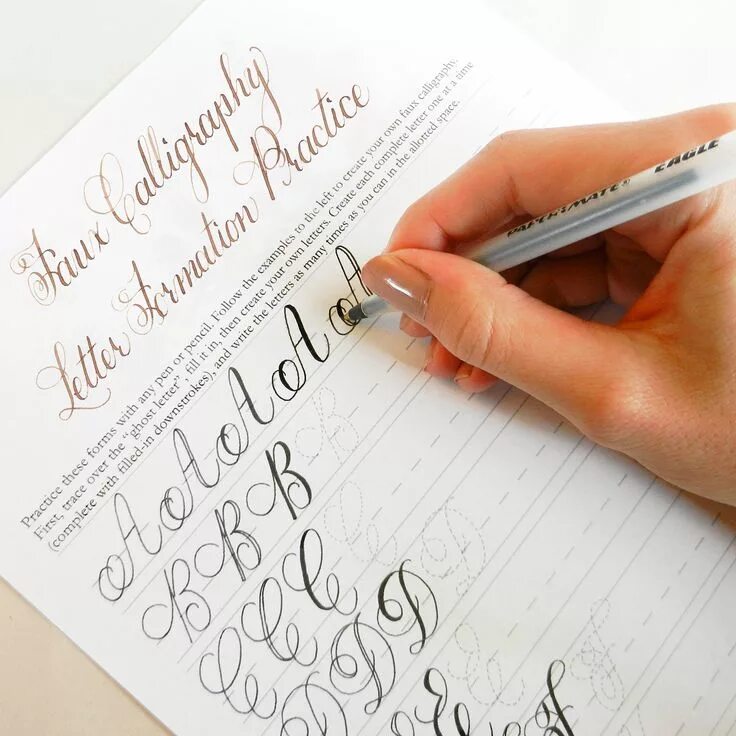 Faux Calligraphy
Letter Formation Practice
Practice these forms with any pen or pencil. Follow the examples to the left to create your own faux calligraphy.
First, trace over the "ghost letter", fill it in, then create your own letters. Create each complete letter one at a time
(complete with filled-in downstrokes), and write the letters as many times as you can in the allotted space.
A A A A A
B B B B
C C C C
D D D D
E E E
F F
PAPER:MATE® EAGLE